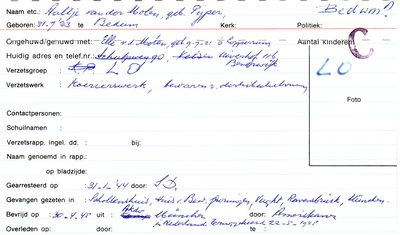 Naam etc.: Aaltje van der Molen, geb. Pijper, Bedum!
Geboren: 31-7-'23 te Bedum Kerk: Politiek:
Ongehuwd/gehuwd met: Elle v.d. Molen, geb. 9-7-'21 te Eppenhuizen Aantal kinderen: C
Huidig adres en telefoon nr.:
Verzetsgroep: LO LO
Verzetswerk: Koerierswerk,
Foto
Contactpersonen:
Schuilnamen :
Verzetsrapp. ingel. dd. : bij:
Naam genoemd in rapp.:
op bladzijde:
Gearresteerd op : 31-1-'44 door: S.D.
Gevangen gezeten in : Scholtenshuis, Huis v. Bew. Groningen, Vught, Ravensbrück, München.
Bevrijd op : 30-4-'45 uit : München door: Amerikanen
in Nederland teruggekeerd 22-5-1945
Overleden op: door: te :